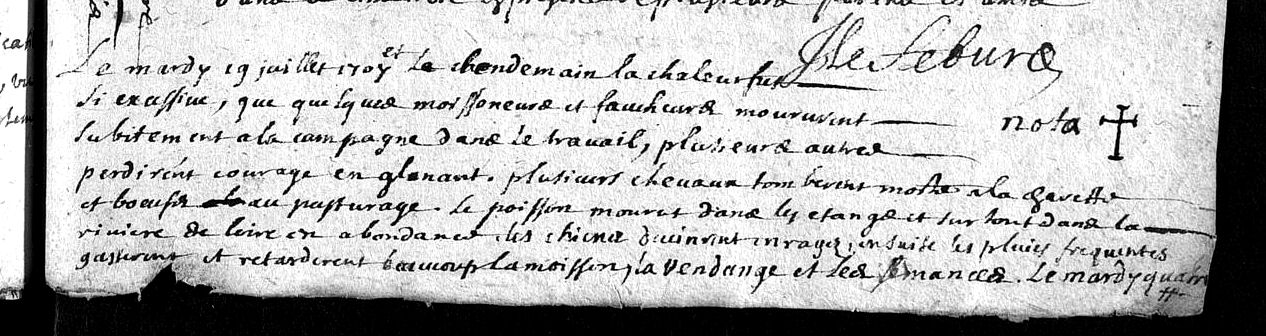 Le mardy 19 juillet 1707 et le Lendemain la chaleur fut
si excessive, que quelques moissoneurs et faucheurs moururent
nota
subitement a la campagne dans le travail, plusieurs autres
perdirent courage en glenant. plusieurs chevaux tomberent morts a la charette
et boeufs au pasturage. Le poisson mourut dans les etangs et sur tout dans la
riviere de loire en abondance, les chiens devinrent enragez, ensuite les pluies frequentes
gasterent et retarderent beaucoup la moisson, la vendange et les semances. Le mardy quatre